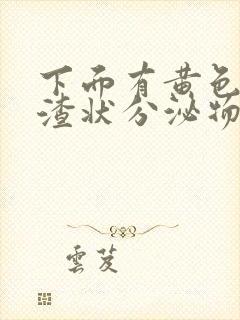 下面有黄色
渣状分泌物
雲芨